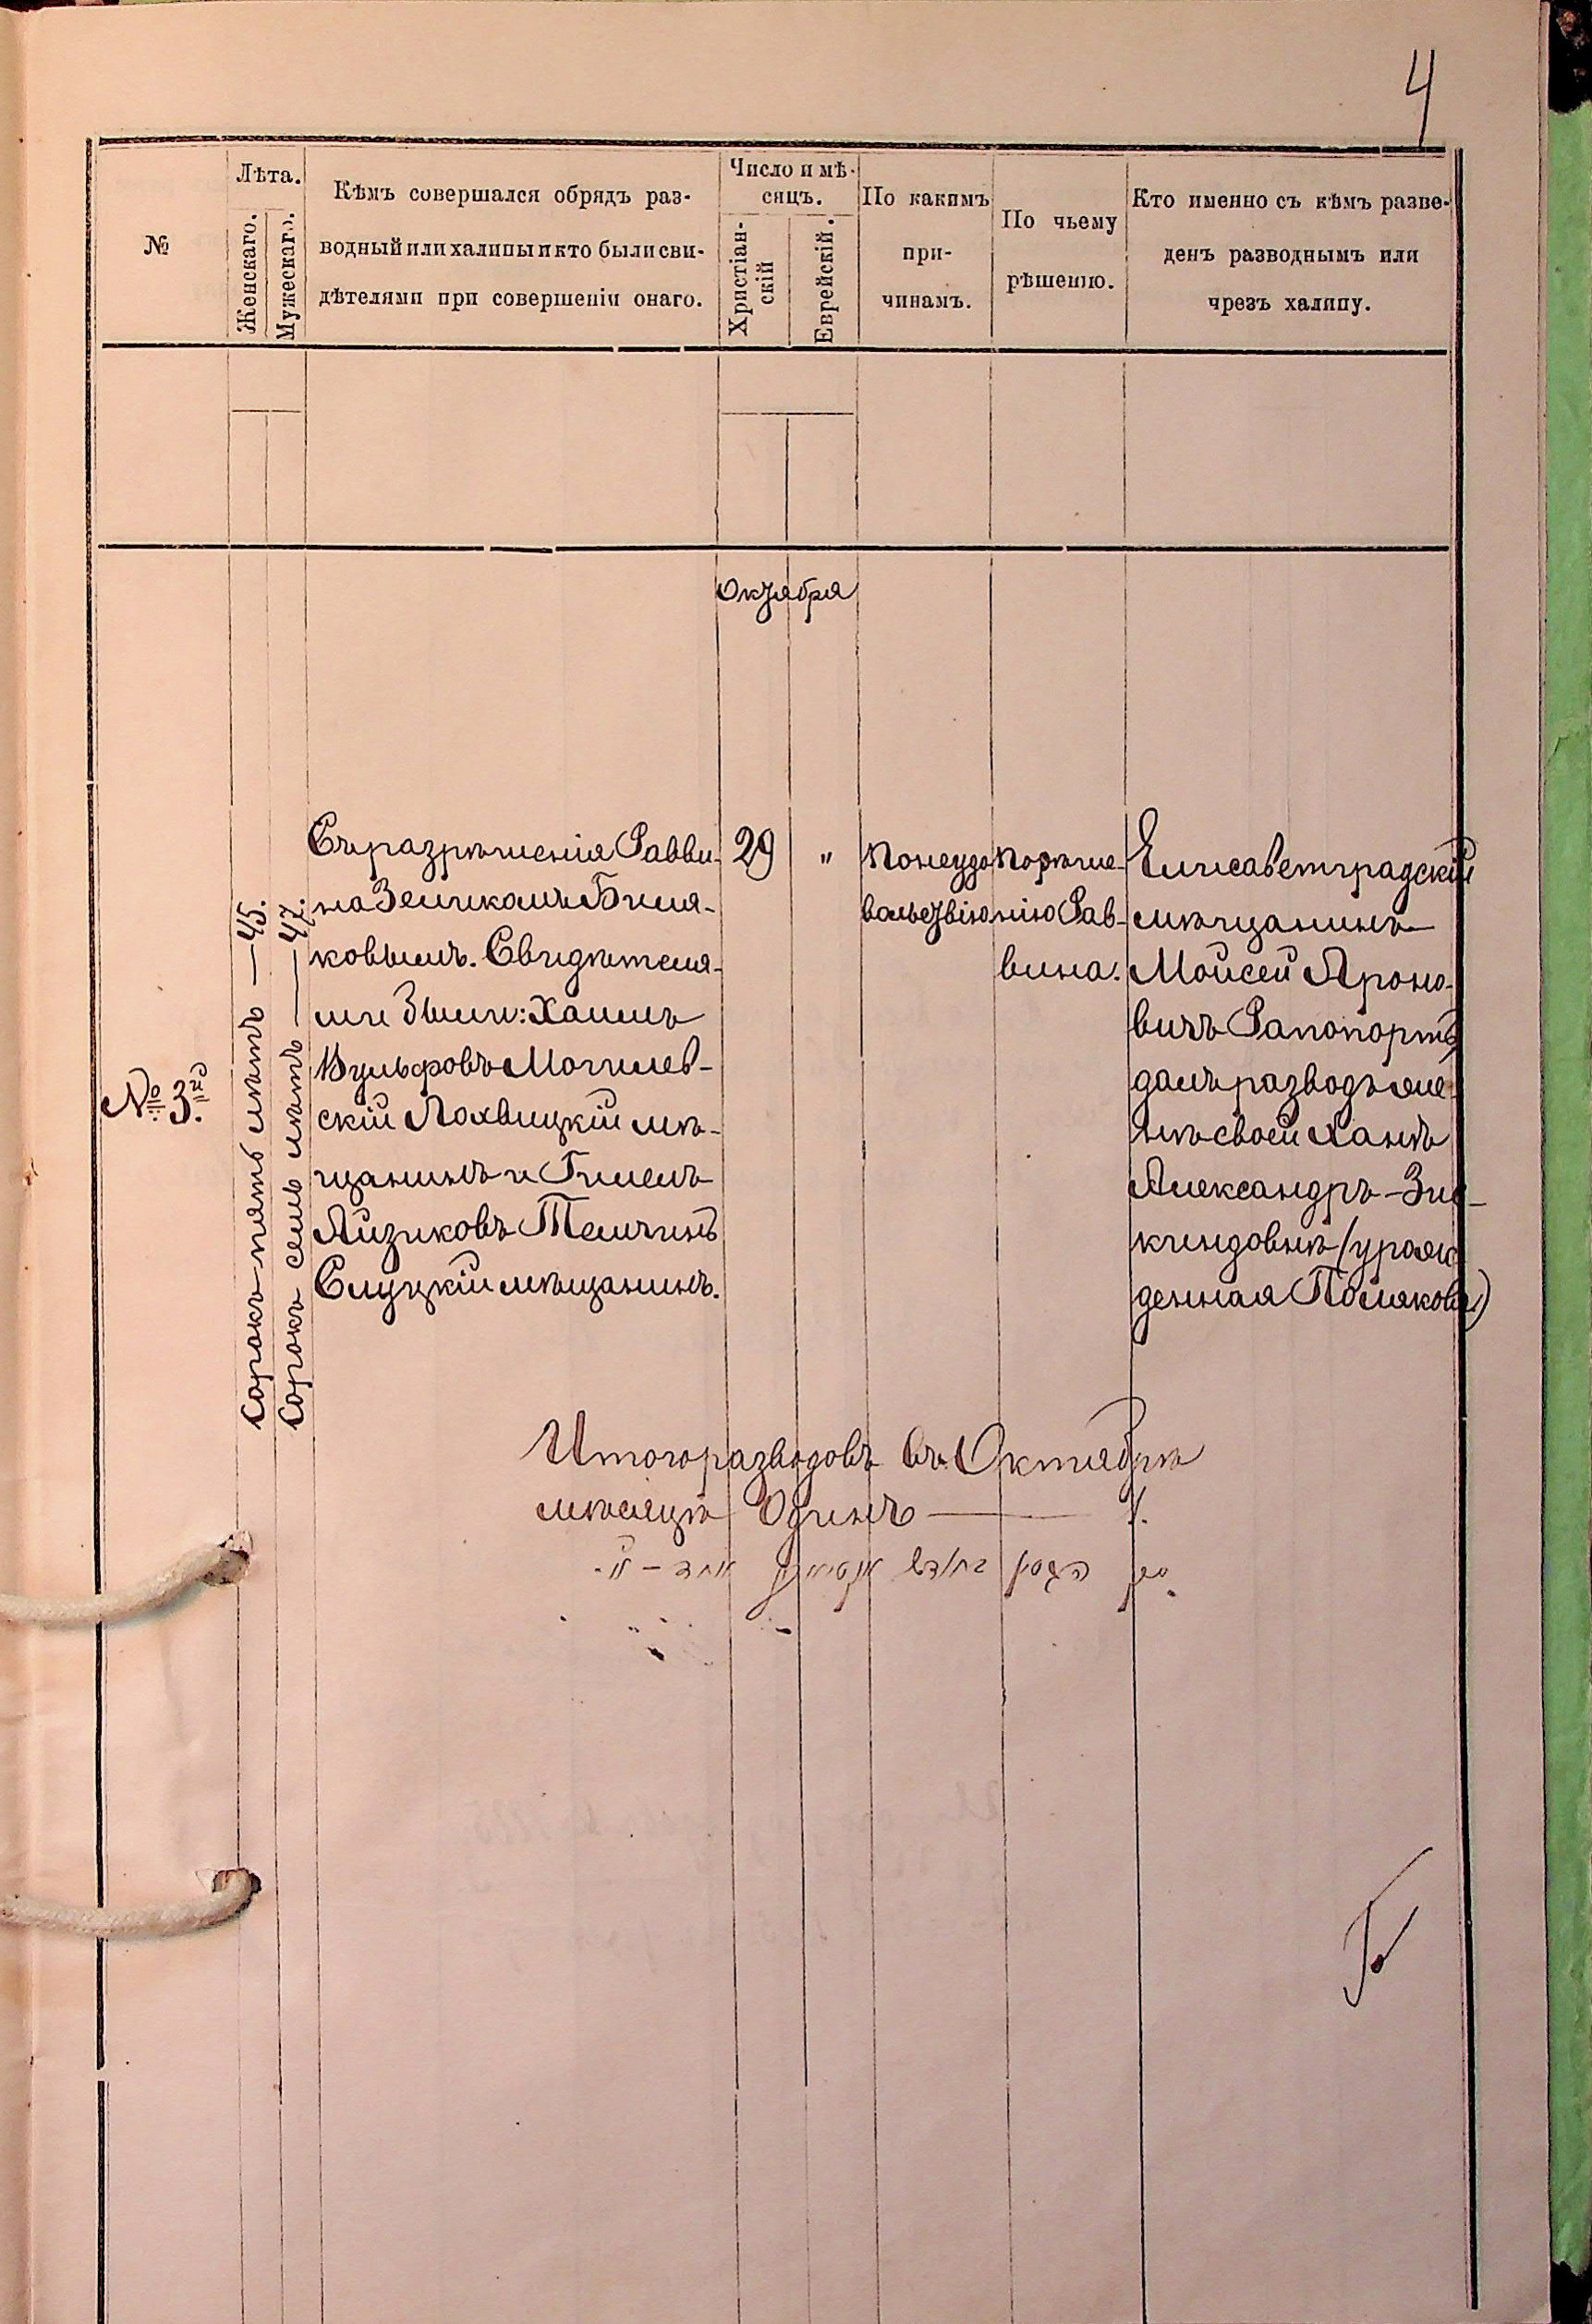 4
№
Лѣта.
Женскаго.
Мужескаго.
Кѣмъ совершался обрядъ раз-
водный или халицы и кто были сви-
дѣтелями при совершеніи онаго.
Число и мѣ-
сяцъ.
Христіан-
скій
Еврейскій.
По какимъ
при-
чинамъ.
По чьему
рѣшенію.
Кто именно съ кѣмъ разве-
денъ разводнымъ или
чрезъ халицу.
Октября
№ 3й.
Сорокъ пять лѣтъ — 45.
Сорокъ семь лѣтъ — 47.
Съ разрѣшенія Равви-
на Зеликомъ Биля-
ковымъ. Свидѣтеля-
ми были: Хаимъ
Вульфовъ Могилев-
скій Лохвицкій мѣ-
щанинъ и Гилель
Айзиковъ Темчинъ
Слуцкій мѣщанинъ.
29
"
По неудо
вольствію
По рѣше-
нію Рав-
вина.
Елисаветградскій
мѣщанинъ
Мойсей Ароно-
вичъ Рапопортъ
далъ разводъ же-
нѣ своей Ханѣ
Александръ-Зис-
киндовнѣ (урож-
денная Полякова)
Итого разводовъ въ Октябрѣ
мѣсяцѣ Одинъ — 1.